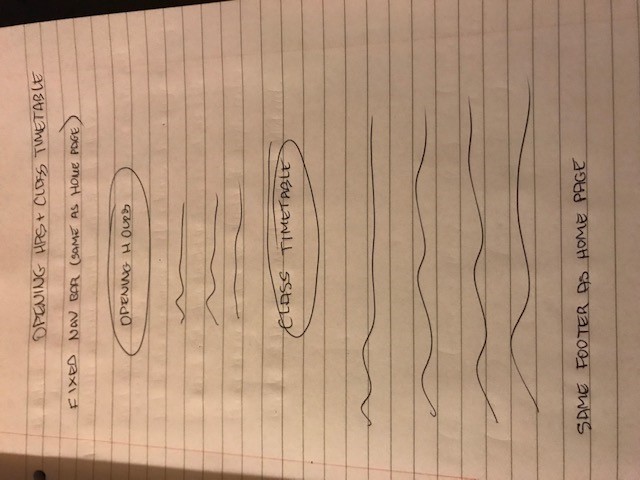 OPENING HRS + CLASS TIMETABLE
FIXED NAV BAR (SAME AS HOME PAGE)
OPENING HOURS
CLASS TIMETABLE
SAME FOOTER AS HOME PAGE